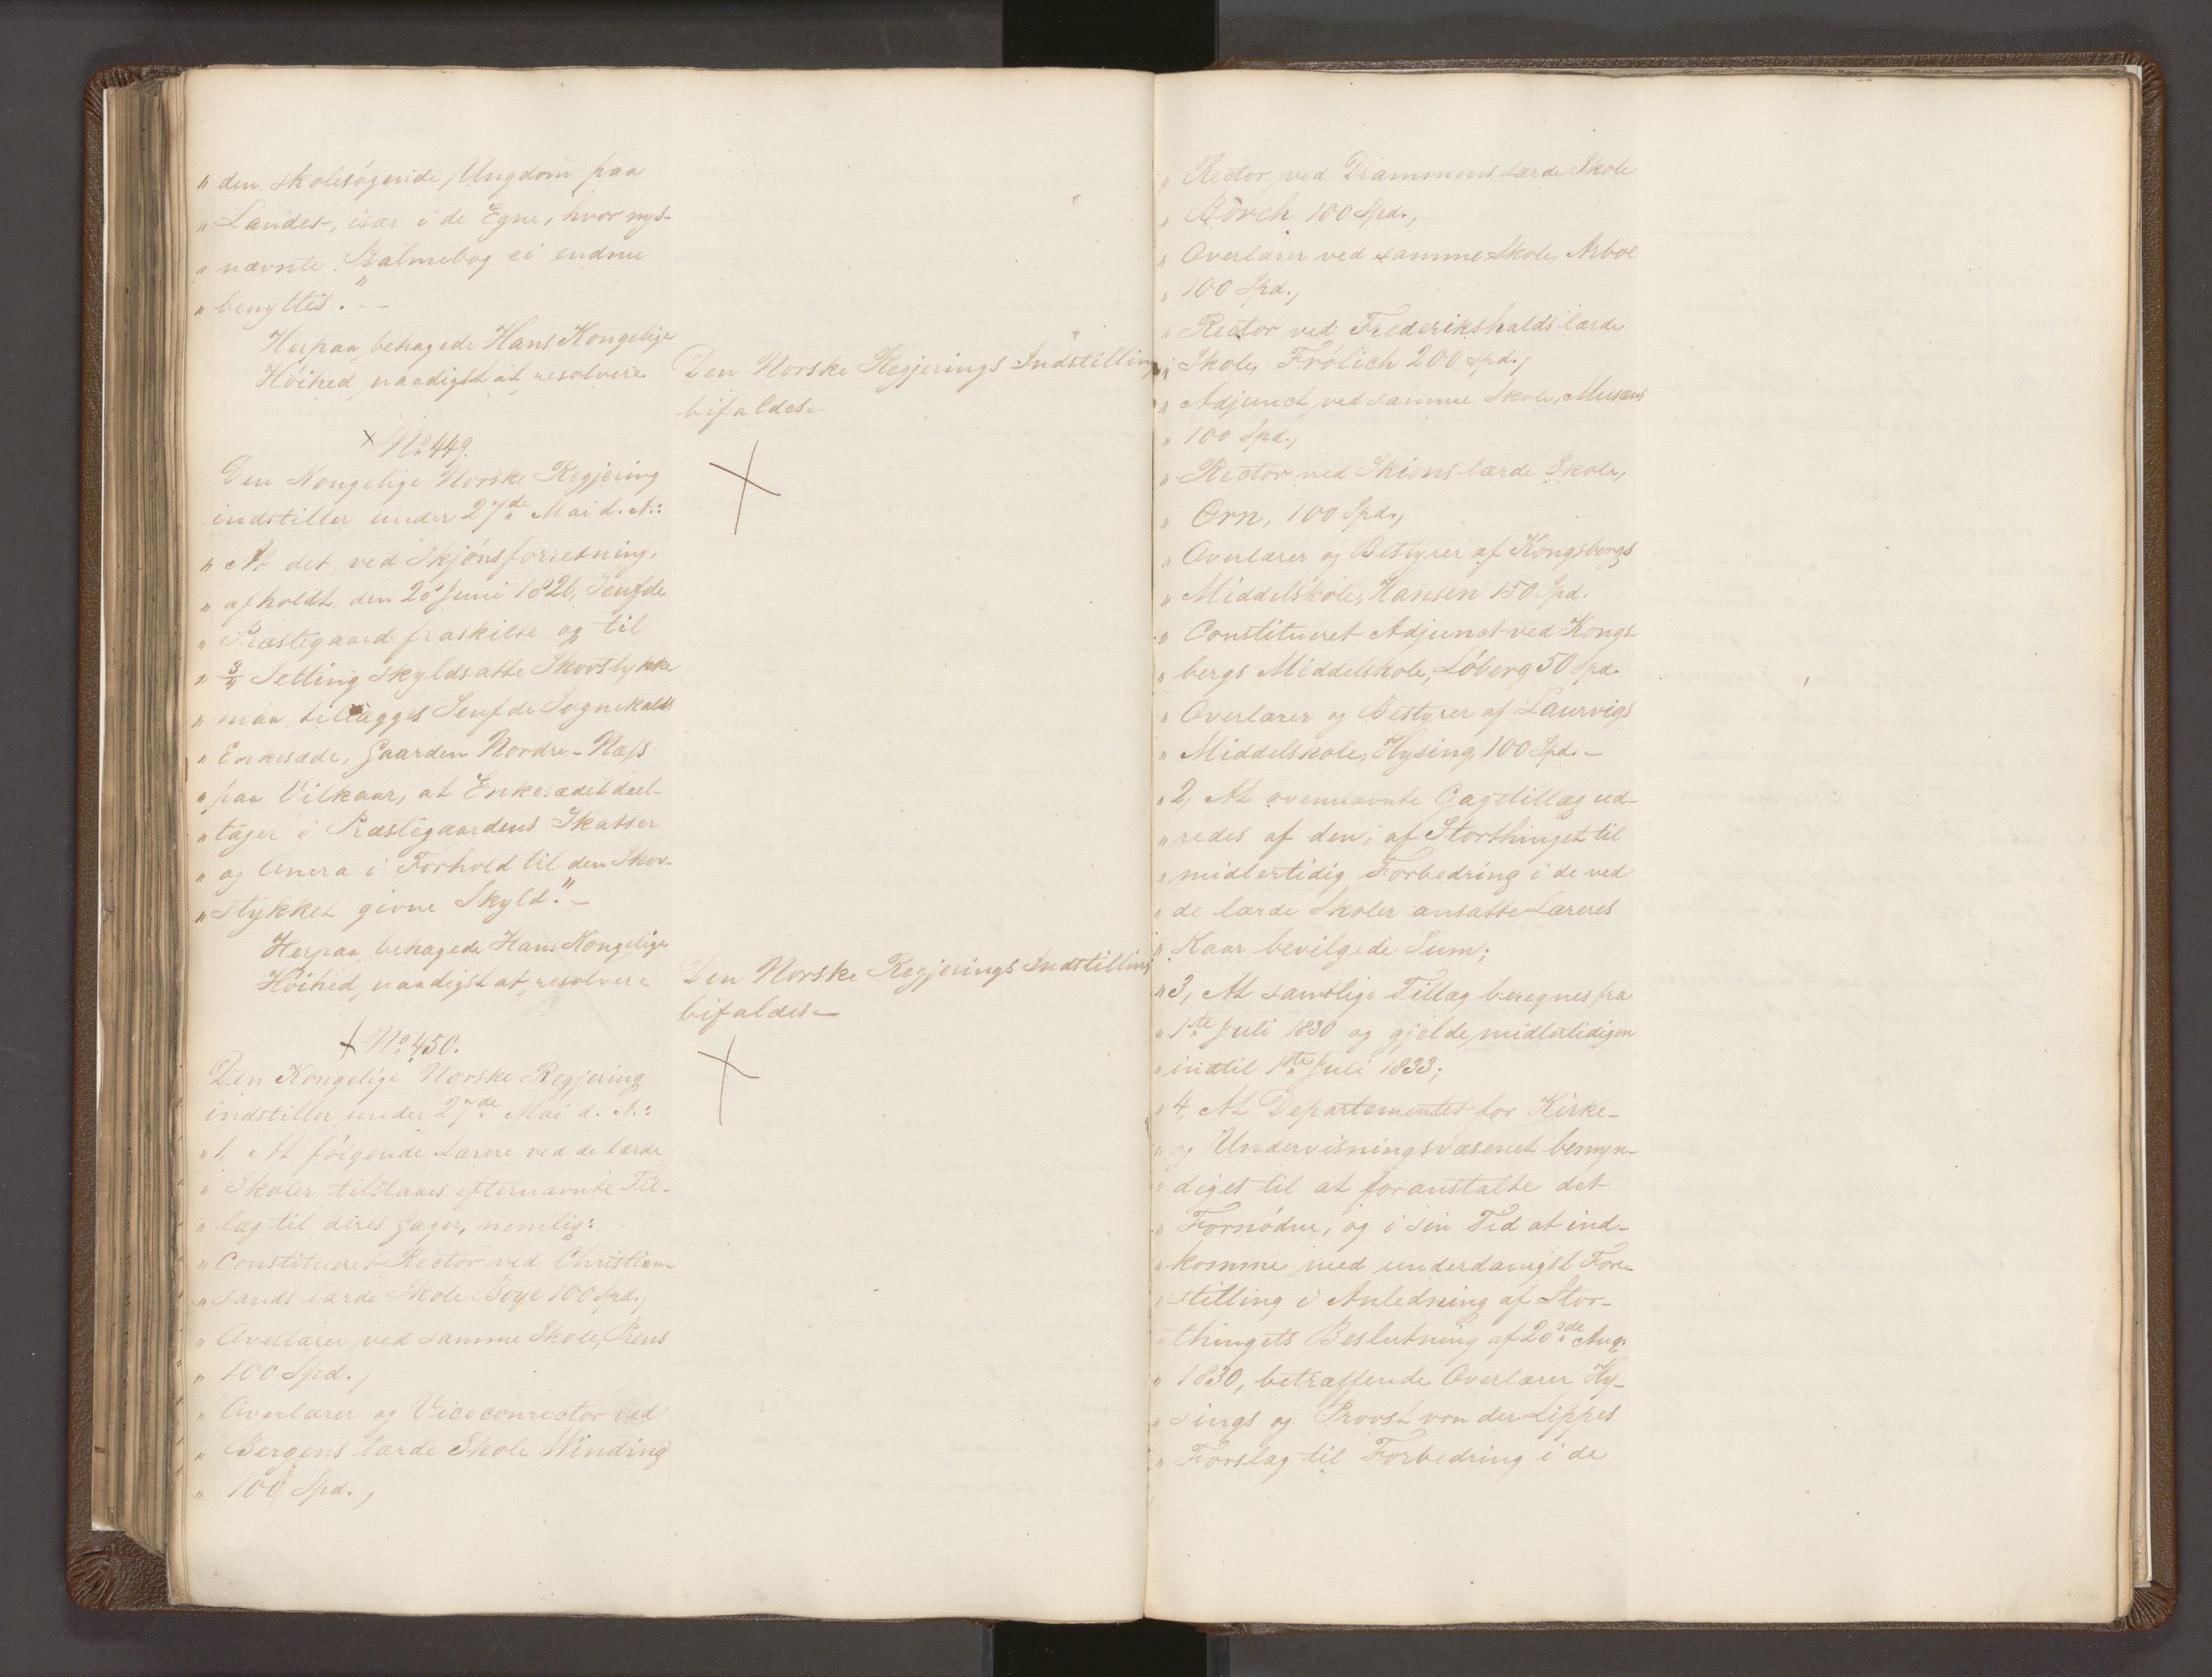 „ den skolesögende Ungdom paa
„ Landet, især i de Egne, hvor nys-
„ nævnte Psalmebog ei endnu
„ benyttes." —
Herpaa behagede Hans Kongelige
Höihed naadigst at resolvere
Den Norske Regjerings Indstilling
bifaldes.
No 449.
Den Kongelige Norske Regjering
indstiller under 27de Mai d. A.:
„ At det ved Skjönsforretning,
„ afholdt den 28 Juni 1826, Jenfde
„ Præstegaard fraskilte og til
„ 3/4 Setting skyldsatte Skovstykke
„ maa tillægges Jenfde Sognekalds
„ Enkesæde, Gaarden Nordre-Næss
„ paa Vilkaar, at Enkesædet deel-
„ tager i Præstegaardens Skatter
„ og Onera i Forhold til den Skov-
„ stykket givne Skyld." —
Herpaa behagede Hans Kongelige
Höihed naadigst at resolvere
Den Norske Regjerings Indstilling
bifaldes —
No 450.
Den Kongelige Norske Regjering
indstiller under 27de Mai d. A.:
„ 1, At fölgende Lærere ved de lærde
„ Skoler tilstaaes efternævnte Til-
„ læg til deres Gager, nemlig:
„ Constitueret Rector ved Christian-
„ sands lærde Skole Boye 100 Spd.,
„ Overlærer ved samme Skole, Prens
„ 100 Spd.,
„ Overlærer og Viceconrector ved
„ Bergens lærde Skole Winding
„ 100 Spd.,
„ Rector ved Drammens lærde Skole
„ Börch 100 Spd.,
„ Overlærer ved samme Skole, Arboe
„ 100 Spd.,
„ Rector ved Frederikshalds lærde
„ Skole, Frölich 200 Spd.,
„ Adjunct ved samme Skole, Musæus
„ 100 Spd.,
„ Rector ved Skiens lærde Skole,
„ Orn, 100 Spd.,
„ Overlærer og Bestyrer af Kongsbergs
„ Middelskole, Hansen 150 Spd.
„ Constitueret Adjunct ved Kongs-
„ bergs Middelskole, Löberg 50 Spd.
„ Overlærer og Bestyrer af Laurvigs
„ Middelskole, Hysing 100 Spd. —
„ 2, At ovennævnte Gagetillæg ud-
„ redes af den, af Storthinget til
„ midlertidig Forbedring i de ved
„ de lærde Skoler ansatte Læreres
„ Kaar bevilgede Sum;
„ 3, At samtlige Tillæg beregnes fra
„ 1ste Juli 1830 og gjelde midlertidigen
„ indtil 1ste Juli 1833;
„ 4, At Departementet for Kirke-
„ og Undervisningsvæsenet bemyn-
„ diges til at foranstalte det
„ Fornödne, og i sin Tid at ind-
„ komme med underdanigst Fore-
„ stilling i Anledning af Stor-
„ thingets Beslutning af 20de Aug:
„ 1830, betræffende Overlærer Hy-
„ sings og Provst von der Lippes
„ Forslag til Forbedring i de